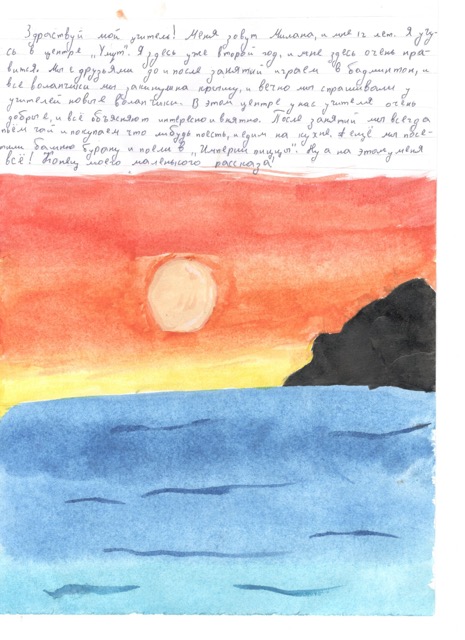 Здраствуй мой учитель! Меня зовут Милана, и мне 12 лет. Я учу-
сь в центре "Умут". Я здесь уже второй год, и мне здесь очень нра-
вится. Мы с друзьями до и после занятий играем в бадминтон, и
все воланчики мы закинули на крышу, и вечно мы спрашивали у
учителей новые воланчики. В этом центре у нас учителя очень
добрые, и всё объясняют интересно и внятно. После занятий мы всегда
пьём чай и покупаем что нибудь поесть, и едим на кухне. А ещё мы посе-
тили башню Бурану и поели в "Империи пиццы". Ну а на этом у меня
всё! Конец моего маленького рассказа